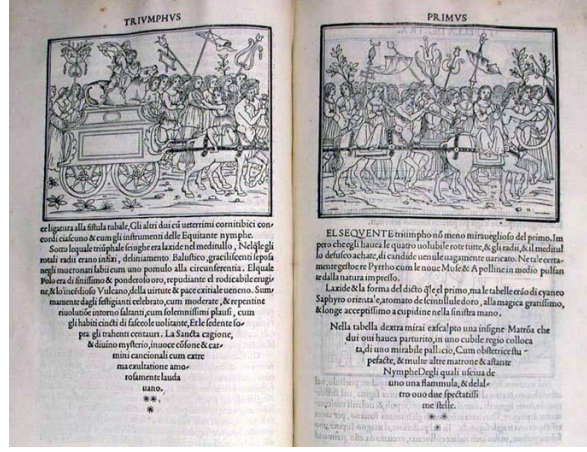 TRIVMPHVS
er ligatura alla fistula tubale, Gli altri dui cū ueterrimi cornitibici con-
cordi ciascuno & cum gli instrumenti delle Equitante nymphe.
Sotto lequale triūphale seiughe era laxide nel meditullo, Nelq̄le gli
rotali radii erano infixi, deliniamento Balustico, graciliscenti seposa
negli mucronati labii cum uno pomulo alla circunferentia. Elquale
Polo era di finissimo & ponderoso oro, repudiante el rodicabile erugi-
ne, & lo incēdioso Vulcano, della uirtute & pace exitiale ueneno. Sum-
mamente dagli festigianti celebrato, cum moderate, & repentine
riuolutiōe intorno saltanti, cum solemnissimi plausi, cum
gli habiti cincti di fasceole uolitante, Et le sedente so-
pra gli trahenti centauri. La Sancta cagione,
& diuino mysterio, inuoce cōsone & car-
mini cancionali cum extre
ma exultatione amo-
rosamente lauda
uano.
PRIMVS
EL SEQVENTE triumpho nō meno mirauegliosο del primo. Im
pero che egli hauea le quatro uolubile rote tutte, & gli radii, & il meditul
lo defusco achate, di candide uenule uagamente uaricato. Ne tale certa-
mente gestoe re Pyrrho cum le noue Muse & Apolline in medio pulsan
te dalla natura impresso.
Laxide & la forma del dicto q̄le el primo, ma le tabelle erāo di cyaneo
Saphyro orientale, atomato de scintilluledoro, alla magica gratissimo,
& longe acceptissimo a cupidine nella sinistra mano.
Nella tabella dextra mirai exscalpto una insigne Matrōa che
dui oui hauea parturito, in uno cubile regio colloca
ta, di uno mirabile pallacio, Cum obstetrice stu-
pefacte, & multe altre matrone & astante
Nymphe Degli quali usciua de
uno una flammula, & delal-
tro ouo due spectatissi
me stelle.